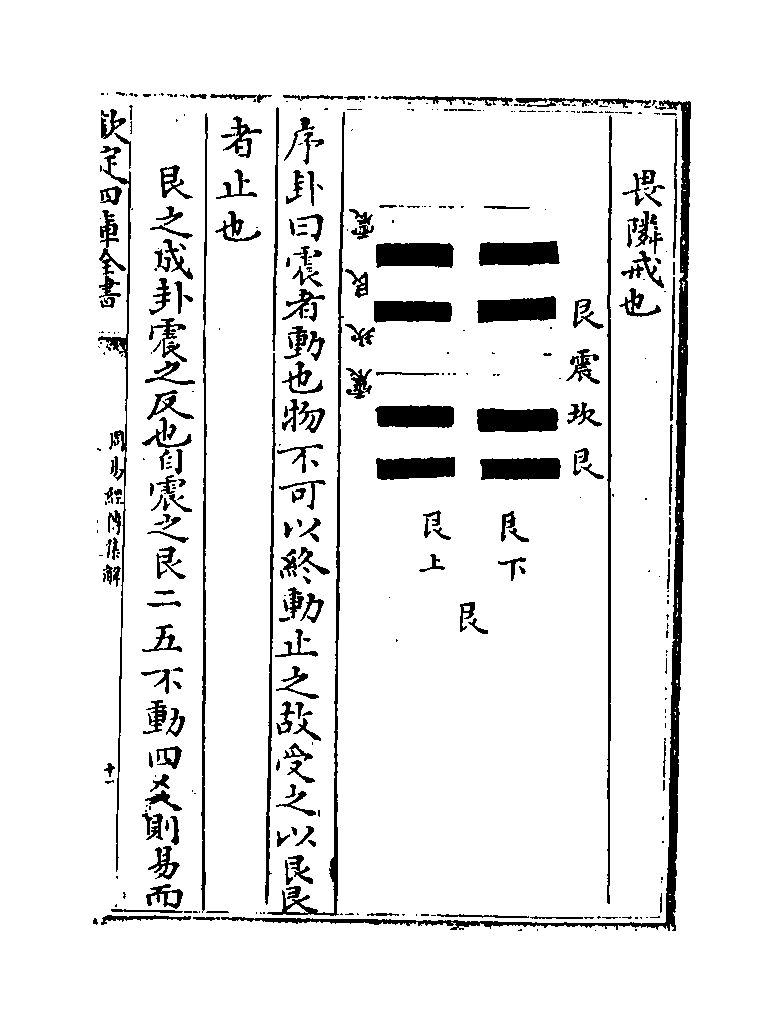 畏隣戒也
艮震坎艮
艮下
艮上
艮
震艮坎震
序卦曰震者動也物不可以終動止之故受之以艮艮
者止也
艮之成卦震之反也自震之艮二五不動四爻則易而
欽定四庫全書
周易經傳集解
十一